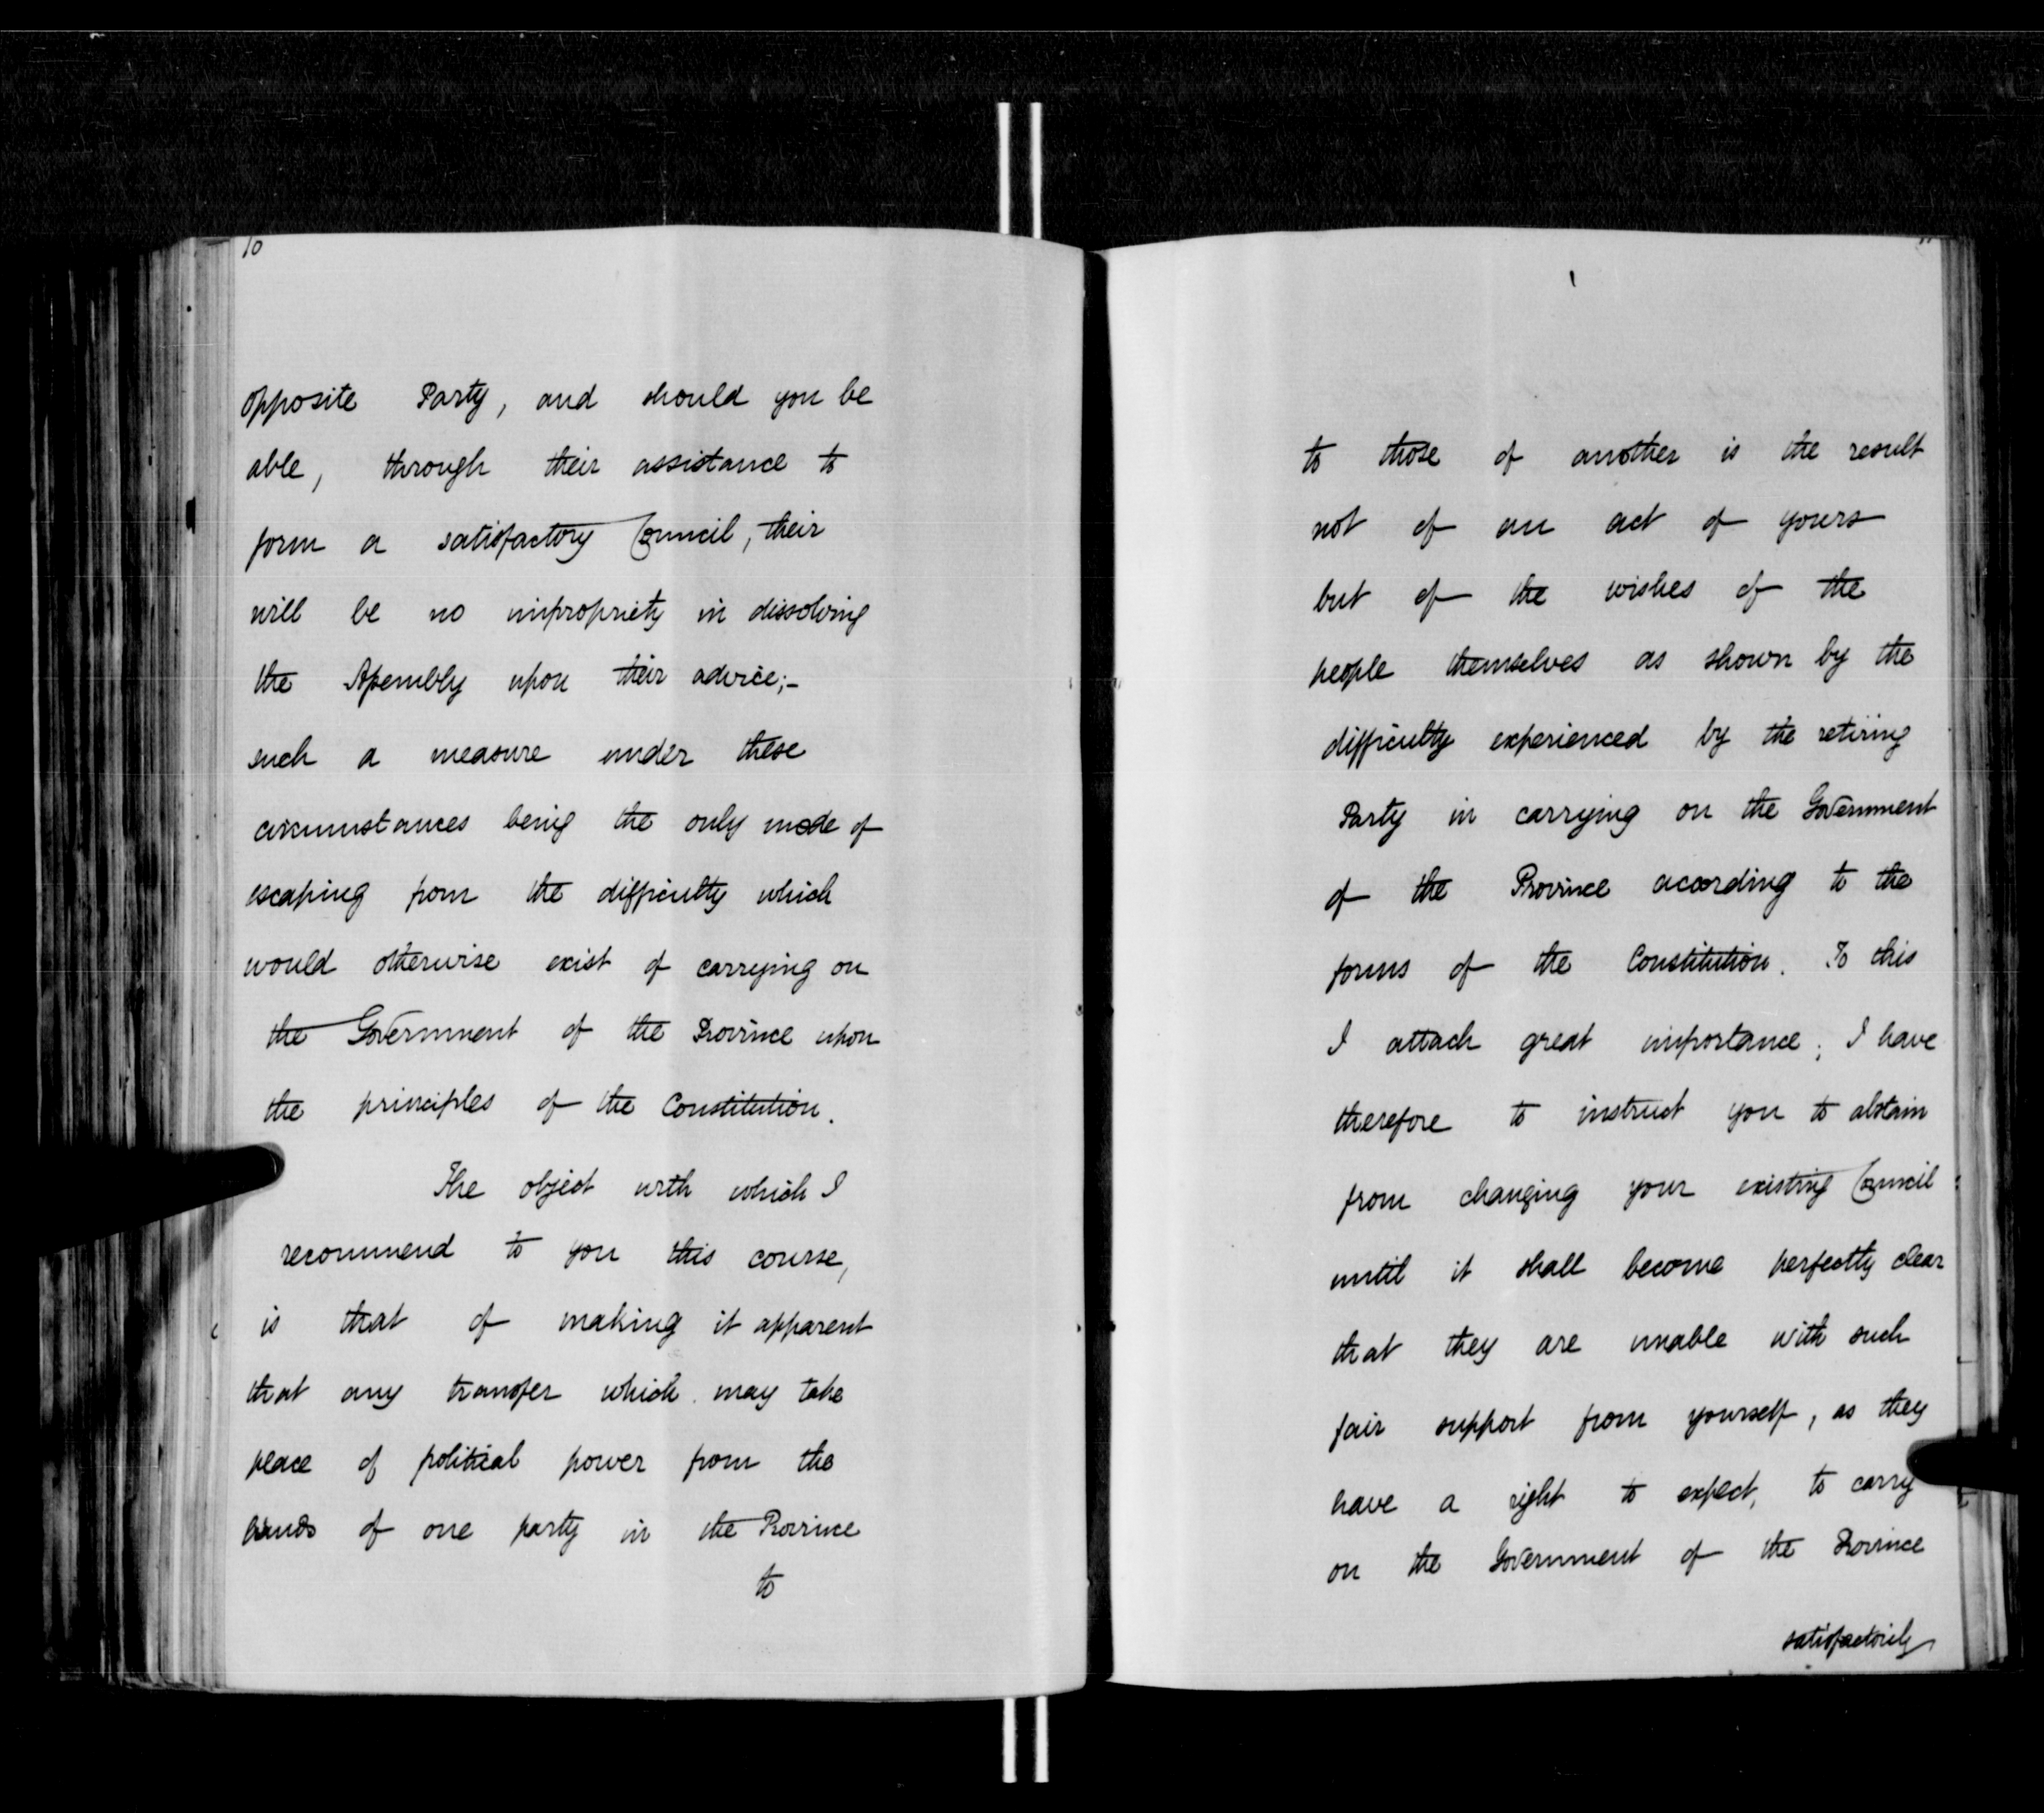 10
opposite Party, and should you be
able, through their assistance to
form a satisfactory Council, their
will be no impropriety in dissolving
the Assembly upon their advice;-
such a measure under these
circumstances being the only mode of
escaping from the difficulty which
would otherwise exist of carrying on
the Government of the Province upon
the principles of the Constitution.
The object with which I
recommend to you this course,
is that of making it apparent
that any transfer which may take
place of political power from the
hands of one party in the Province
to
to those of another is the result
not of an act of yours
but of the wishes of the
people themselves as shown by the
difficulty experienced by the retiring
Party in carrying on the Government
of the Province according to the
forms of the Constitution. To this
I attach great importance; I have
therefore to instruct you to abstain
from changing your existing Council
until it shall become perfectly clear
that they are unable with such
fair support from yourself, as they
have a right to expect, to carry
on the Government of the Province
satisfactorily